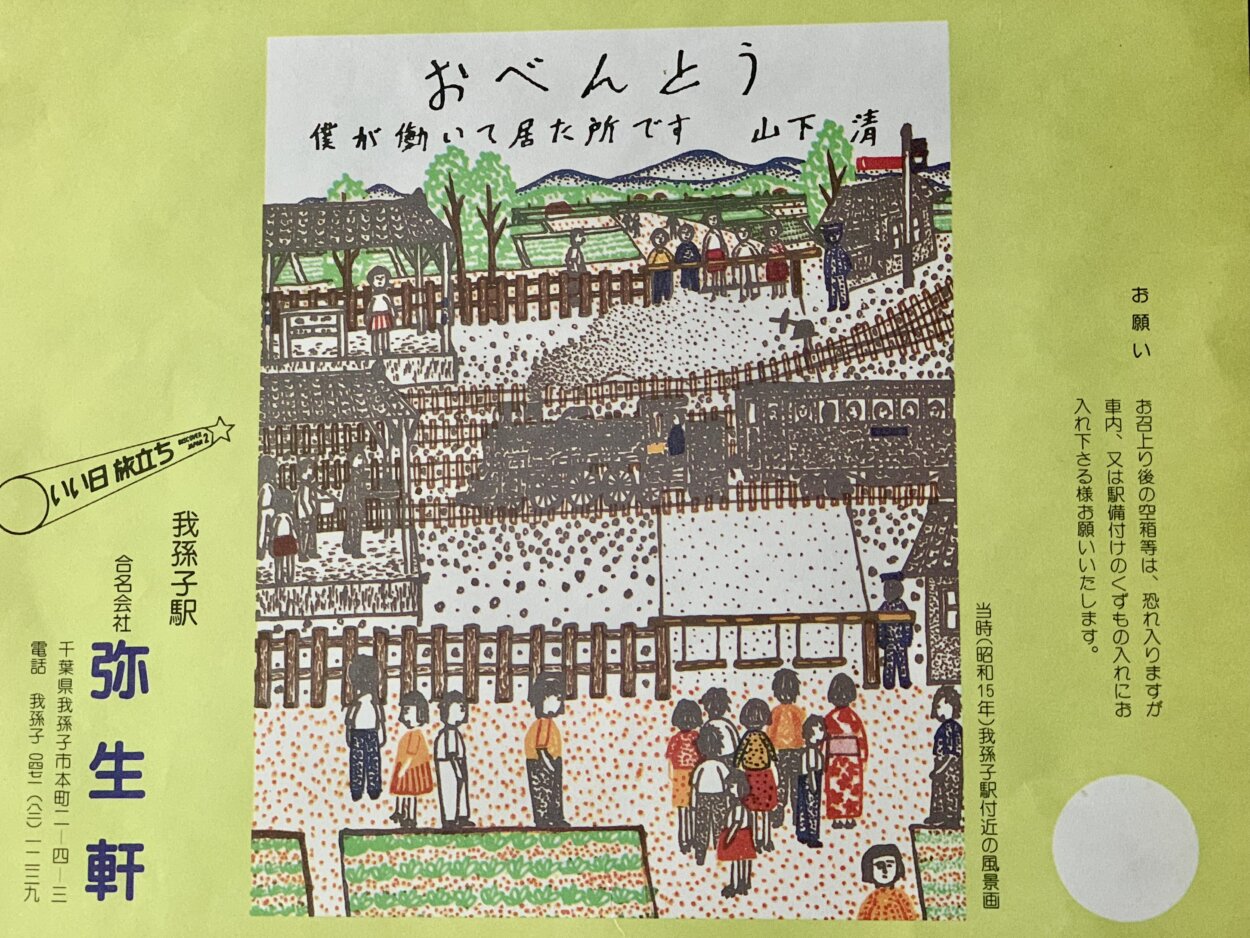 おべんとう
僕が働いて居た所です 山下 清
お願い
お召上り後の空箱等は、恐れ入りますが
車内、又は駅備付けのくずもの入れにお
入れ下さる様お願いいたします。
当時(昭和15年)我孫子駅付近の風景画
いい日旅立ち
DISCOVER
JAPAN 2
我孫子駅
合名会社
弥生軒
千葉県我孫子市本町二―四―三
電話 我孫子 〇四七一(八二)一二三九